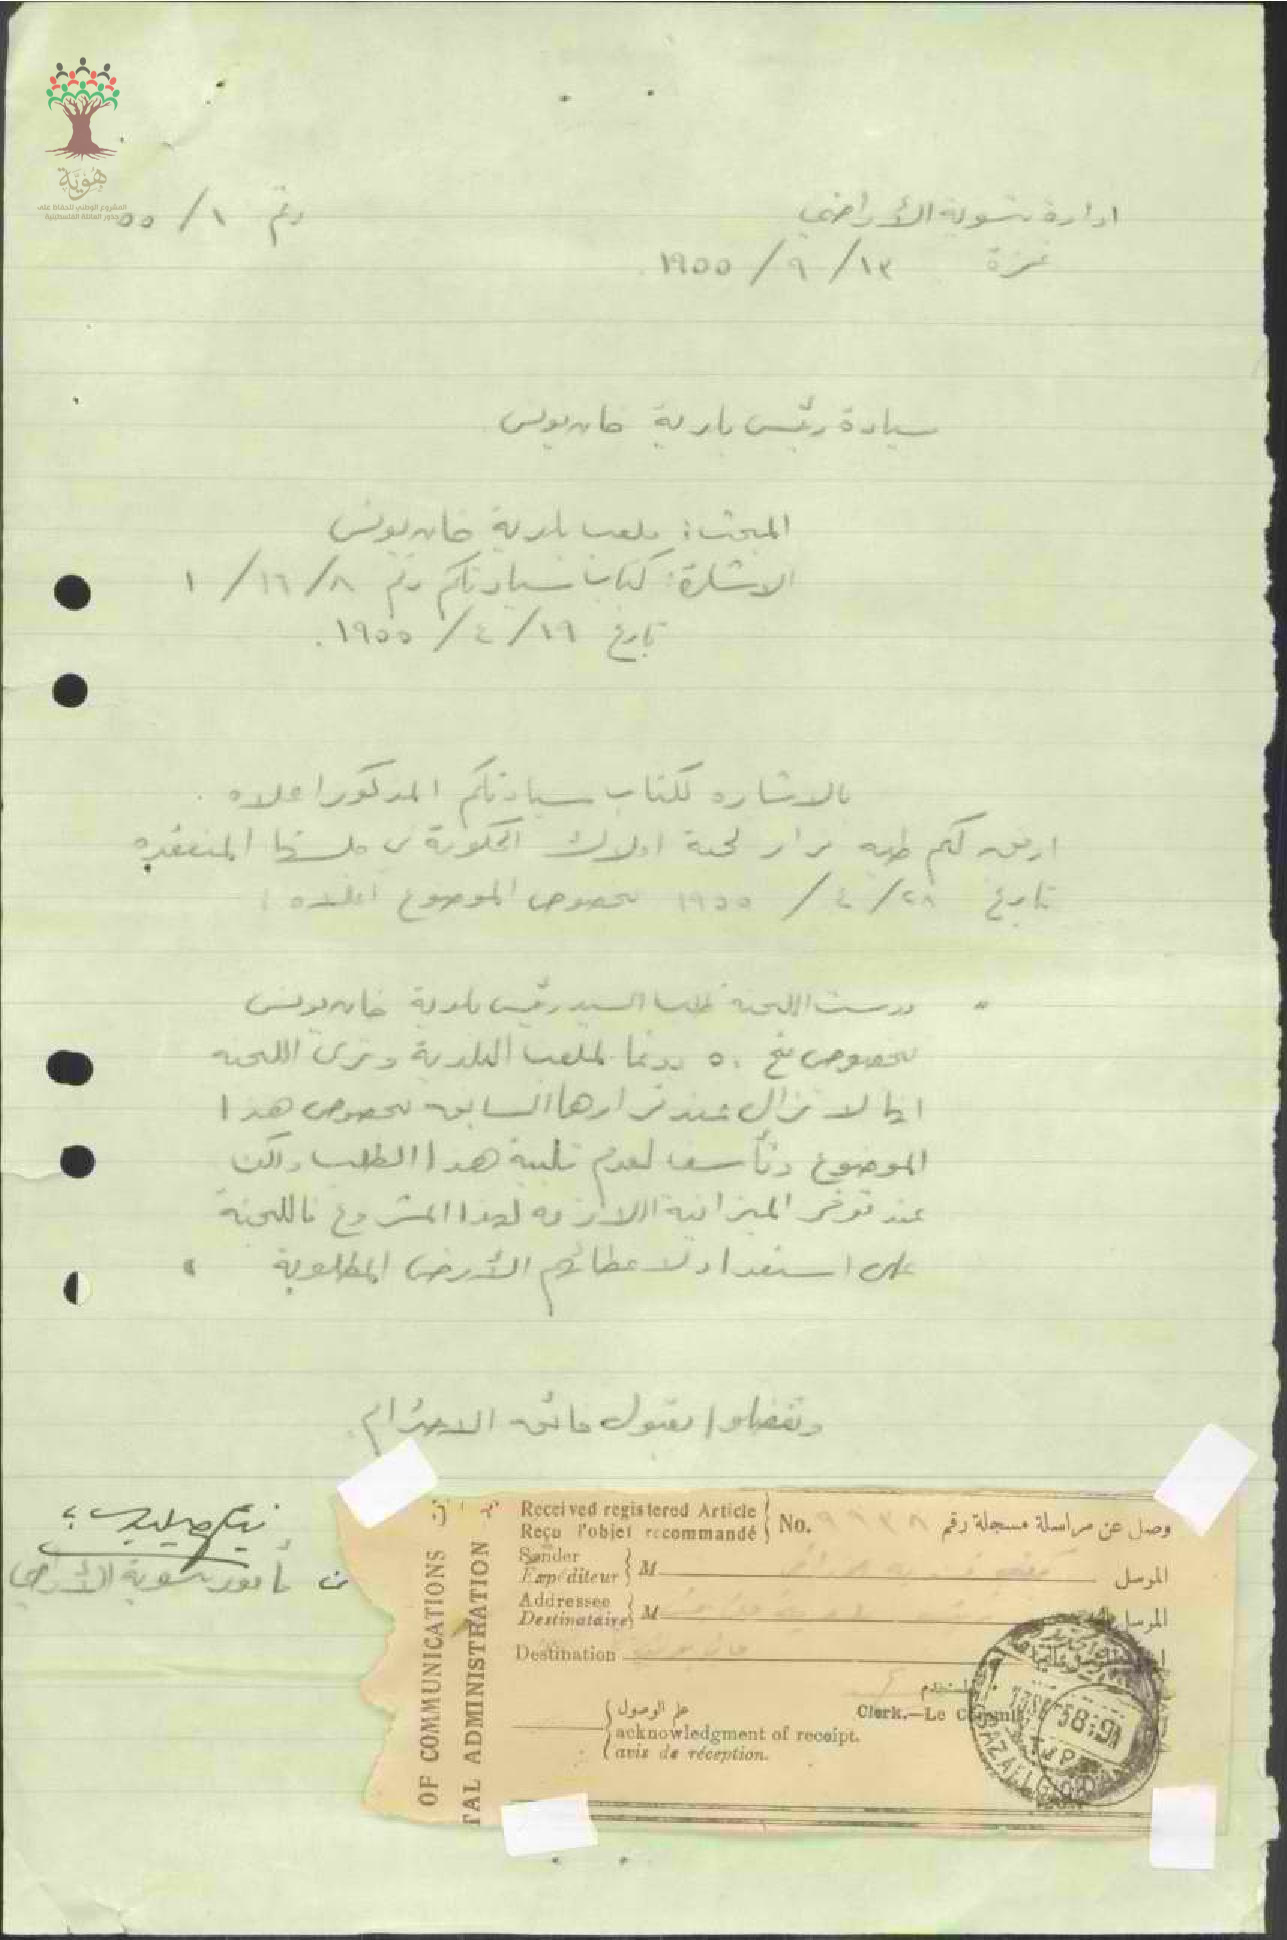 هُوِيَّة
المشروع الوطني للحفاظ على
جذور العائلة الفلسطينية
ادارة تسوية الأراضي
رقم ١ / ٥٥
غزة ١٣ / ٩ / ١٩٥٥ .
سيادة رئيس بلدية خان يونس
المبحث : ملعب بلدية خان يونس
الاشارة : كتاب سيادتكم رقم ٨ / ١٦ / ١
تاريخ ١٩ / ٤ / ١٩٥٥ .
بالاشاره لكتاب سيادتكم المذكور اعلاه .
ارفق لكم طيه قرار لجنة املاك الحكومة في جلستها المنعقده
تاريخ ٢٨ / ٤ / ١٩٥٥ بخصوص الموضوع اعلاه :
" درست اللجنة طلب السيد رئيس بلدية خان يونس
بخصوص منح ٥٠ دونما لملعب البلدية وترى اللجنه
انها لا تزال عند قرارها السابق بخصوص هذا
الموضوع وتأسف لعدم تلبية هذا الطلب ولكن
عند توفر الميزانية اللازمه لهذا المشروع فاللجنة
على استعداد لاعطائهم الأرض المطلوبة "
وتفضلوا بقبول فائق الاحترام .
ن مأمور تسوية الأراضي
OF COMMUNICATIONS
TAL ADMINISTRATION
Received registered Article
Reçu l'objet recommandé
No. ٩٩٣٨ وصل عن مراسلة مسجلة رقم
Sender
Expéditeur
M المرسل
Addressee
Destinataire
M
Destination خان يونس
المستخدم
Clerk.—Le Commis
علم الوصول
acknowledgment of receipt.
avis de réception.
GAZA